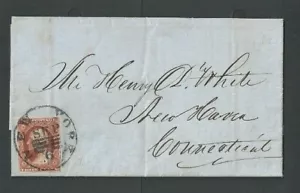 Mr Henry D. White
New Haven
Connecticut
NEW YORK